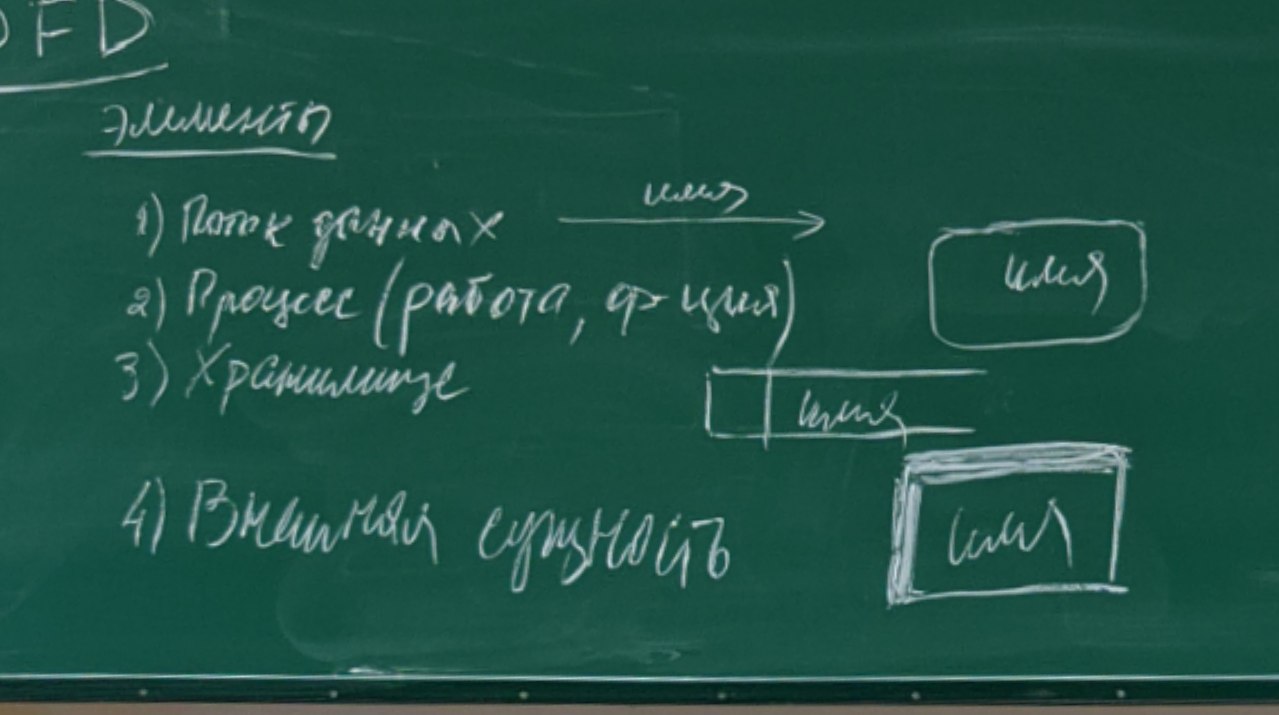 DFD
Элементы
1) Поток данных имя
2) Процесс (работа, ф-ция) имя
3) Хранилище имя
4) Внешняя сущность имя